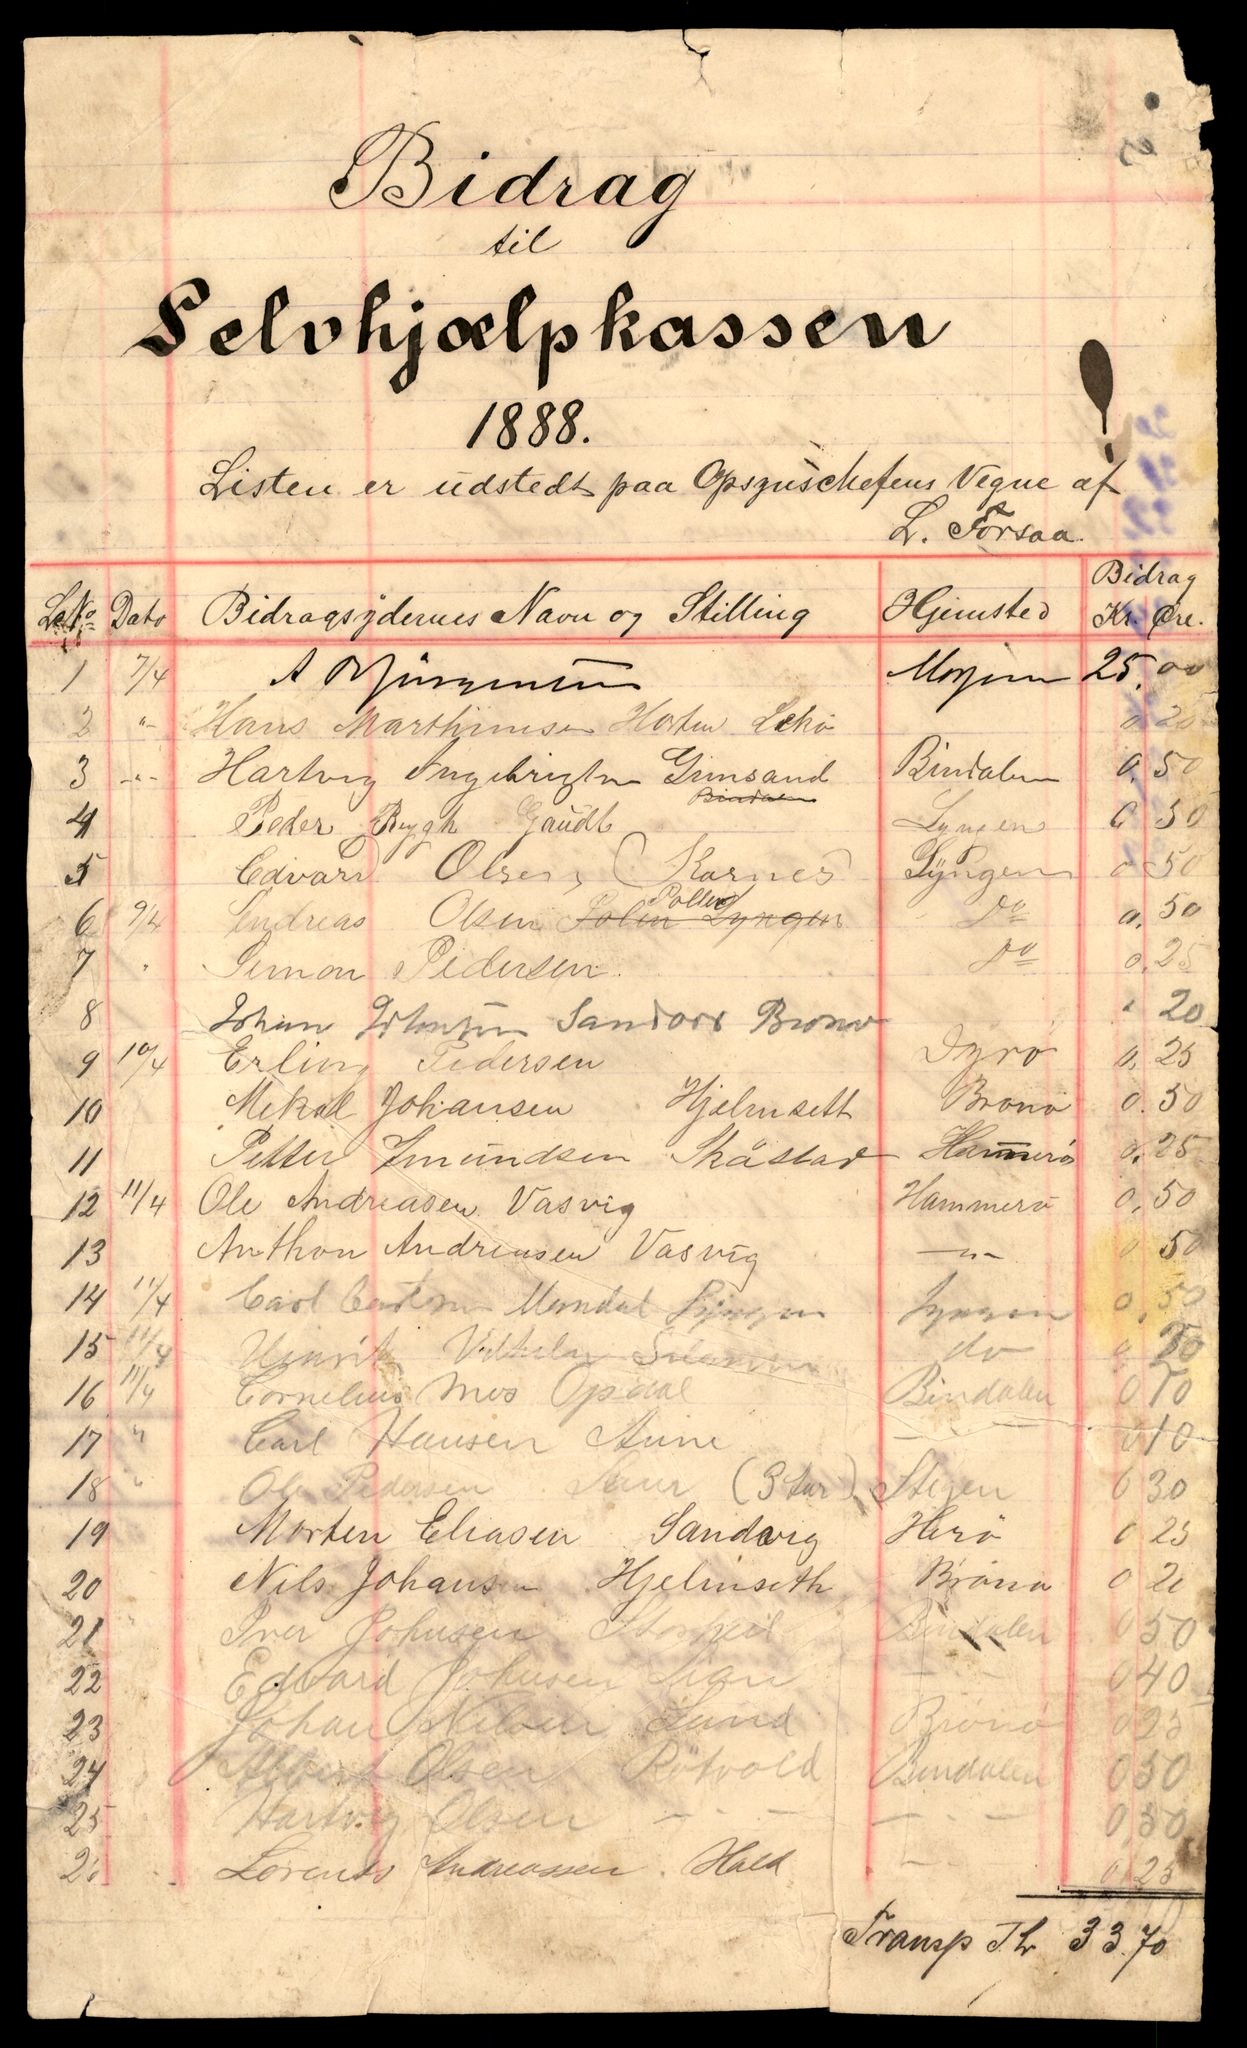 Bidrag
til
Selvhjælpkassen
1888.
Listen er udstedt paa Opsynschefens Vegne af
L. Forsaa.
LøNo Dato Bidragsydernes Navn og Stilling Hjemsted Bidrag Kr. Øre.
1 7/4 A 25,00
2 " Hans Marthinsen Horten Lekø 0,25
3 " Hartvig Ingebrigtsen Grinsand Bindalen Bindalen 0,50
4 Peder Bygh Gaudt Lyngen 0 50
5 Edvard Olsen, (Karnes) Lyngen 0.50
6 9/4 Andreas Olsen Polen Lyngen Pollen Do 0.50
7 " Simon Pedersen. Do 0.25
8 Johan Sandvor Brønø " 20
9 10/4 Erling Pedersen Dyrø 0,25
10 Mikal Johansen Hjelmsett Brønø 0.50
11 Petter Amundsen Skåstad Hammerø 0,25
12 11/4 Ole Andreasen Vasvig Hammerø 0,50
13 Anthon Andreasen Vasvig —"— 0 50
14 11/4 Carl Lyngen Lyngen 0,50
15 11/4 Henrik do 0 50
16 11/4 Cornelius Mos Opdal Bindalen 0 50
17 " Carl Hansen Aune — " — 0 10
18 " Ole Pedersen (3 tur) Stegen 0 30
19 Morten Eliasen Sandvig Herø 0 25
20 Nils Johansen Hjelmseth Brønø 0 20
21 Iver Johnsen Bindalen 0 50
22 Edvard Johnsen Lian — - 0 40
23 Johan Nilsen Lund Brønø 0 25
24 Albert Olsen Røtvold Bindalen 0 50
25 Hartvig Olsen — " — — " — 0,50
2 Lorents Andreassen. Hald —"— 0,25
Transp Kr 33.70